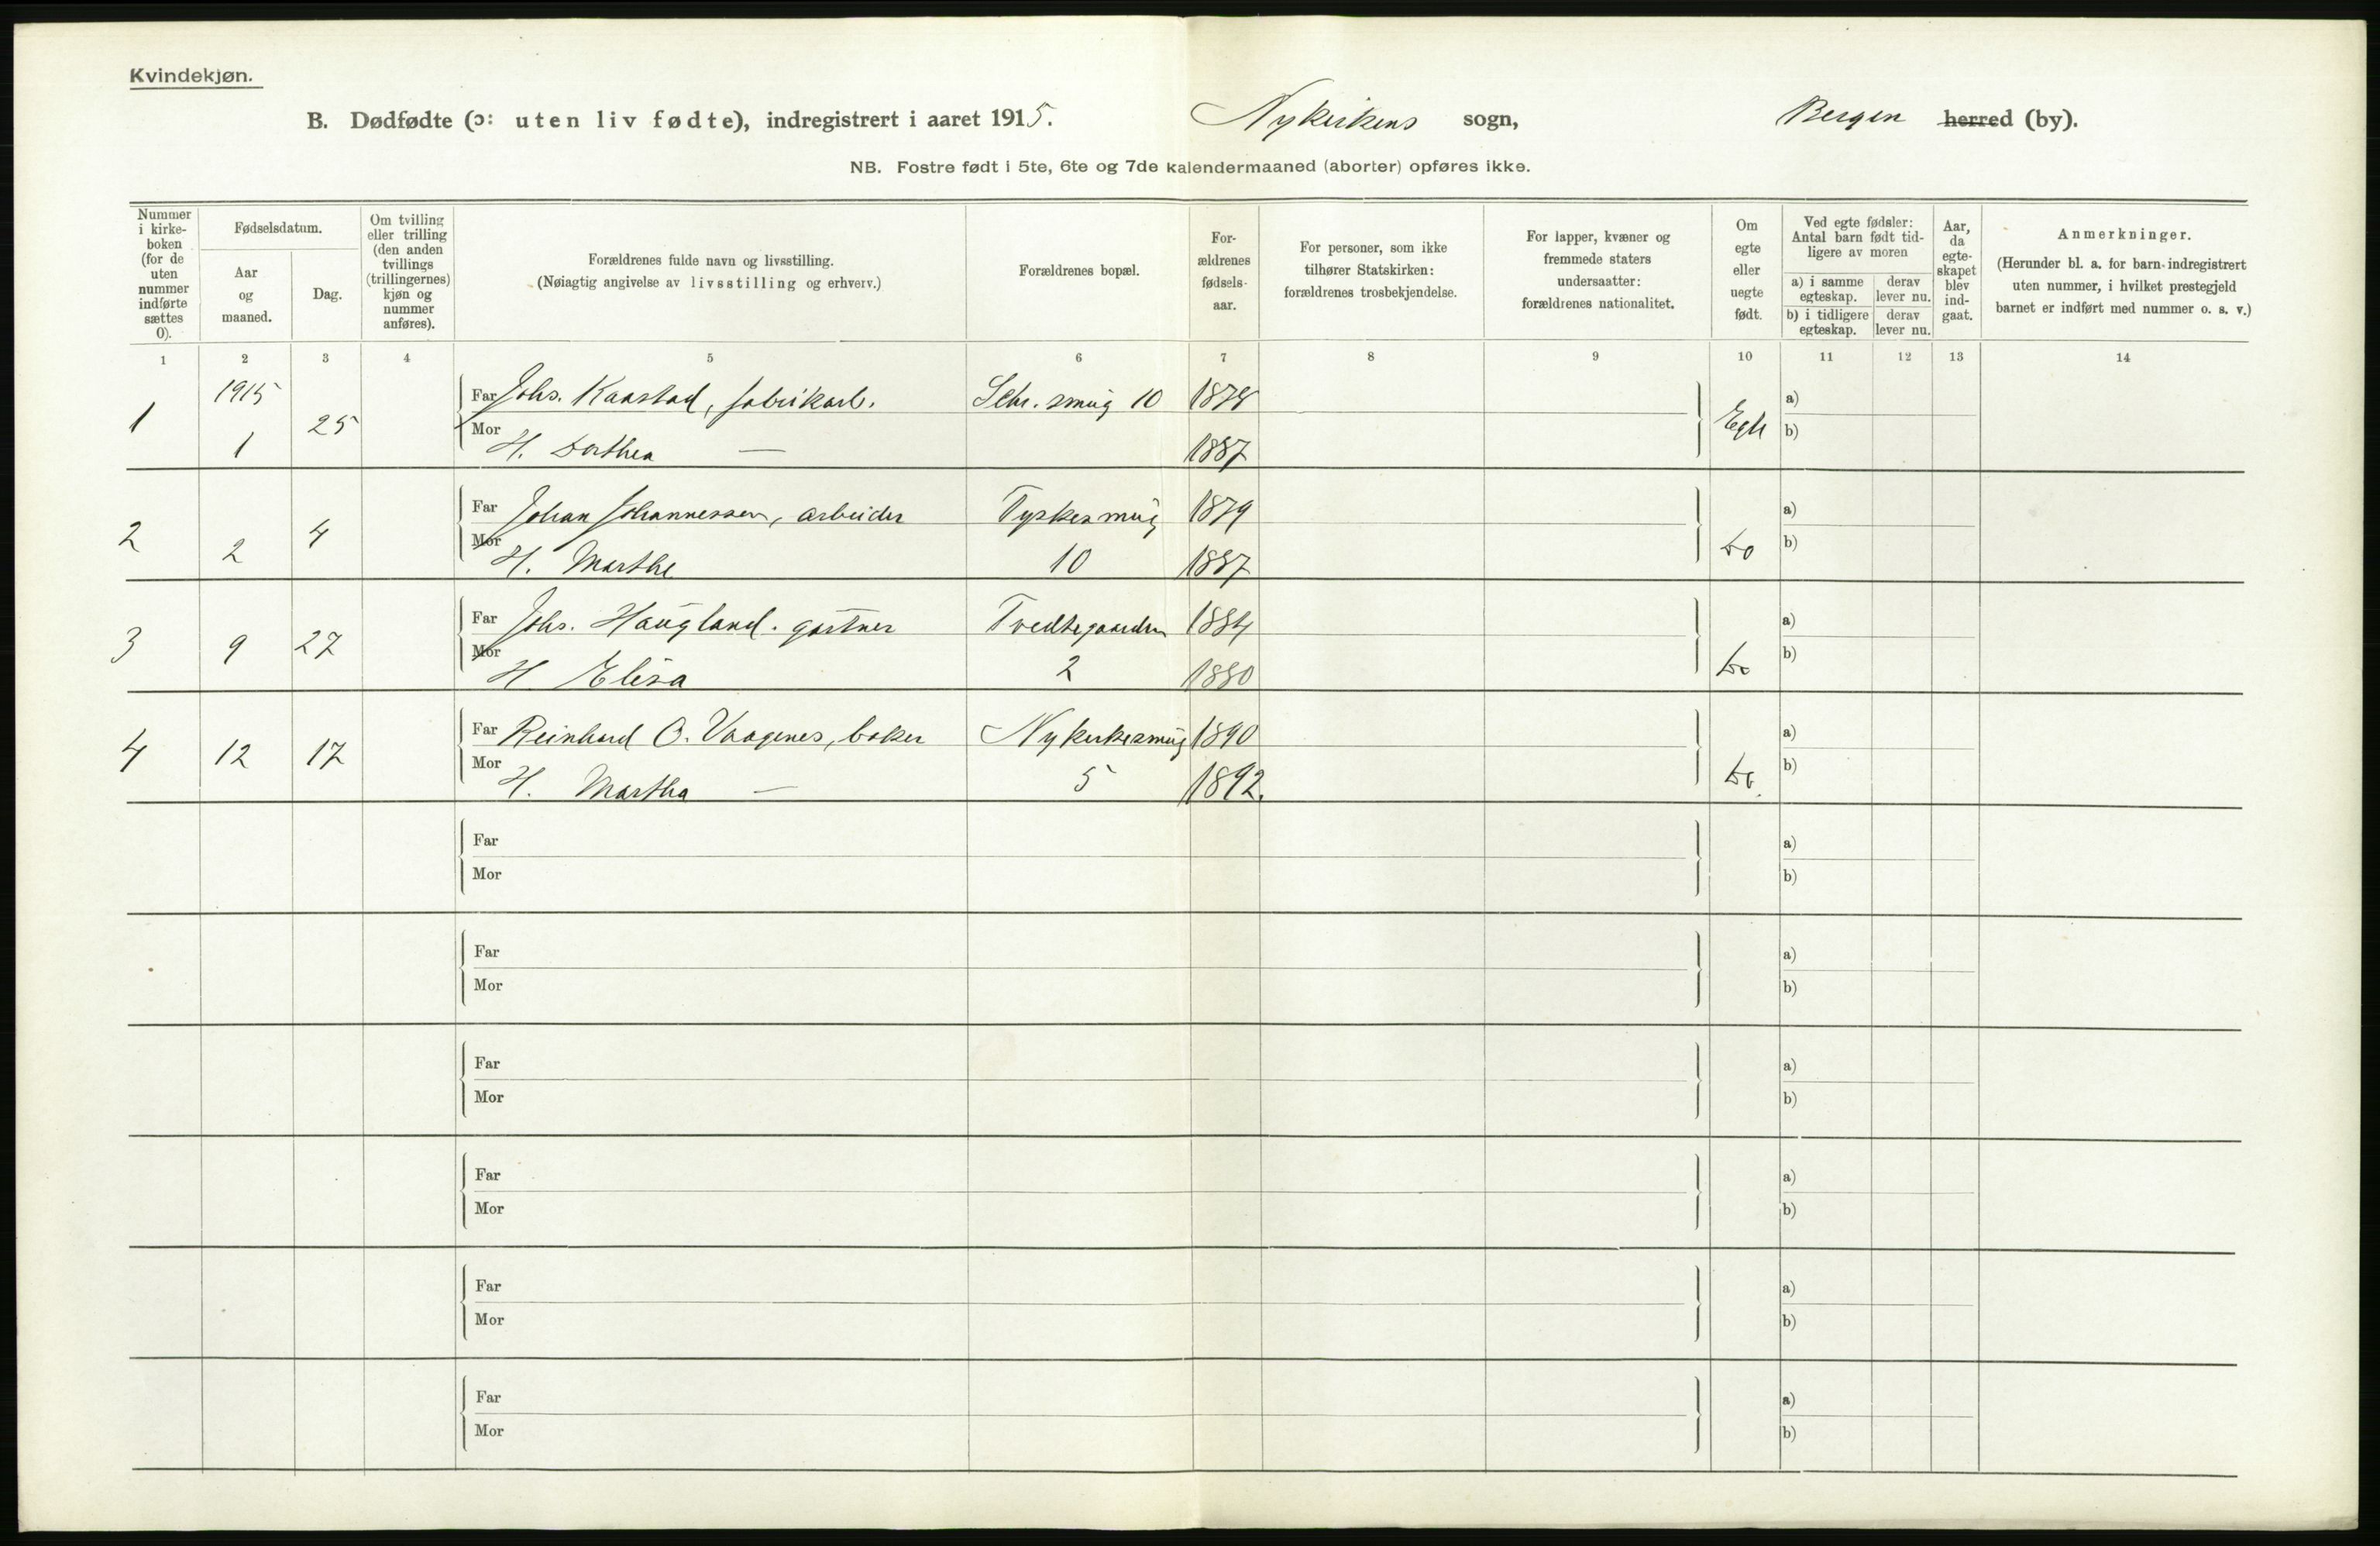 Kvindekjøn.
B. Dødfødte (ɔ: uten liv fødte), indregistrert i aaret 1915. Nykirkens sogn, Bergen herred (by).
NB. Fostre født i 5te, 6te og 7de kalendermaaned (aborter) opføres ikke.
Nummer i kirke- boken (for de uten nummer indførte sættes 0).
Fødselsdatum.
Aar og maaned.
Dag.
Om tvilling eller trilling (den anden tvillings (trillingernes) kjøn og nummer anføres).
Forældrenes fulde navn og livsstilling.
(Nøiagtig angivelse av livsstilling og erhverv.)
Forældrenes bopæl.
For- ældrenes fødsels- aar.
For personer, som ikke tilhører Statskirken: forældrenes trosbekjendelse.
For lapper, kvæner og fremmede staters undersaatter: forældrenes nationalitet.
Om egte eller uegte født.
Ved egte fødsler: Antal barn født tid- ligere av moren
a) i samme egteskap. derav lever nu.
b) i tidligere egteskap. derav lever nu.
Aar, da egte- skapet blev ind- gaat.
Anmerkninger.
(Herunder bl. a. for barn indregistrert uten nummer, i hvilket prestegjeld barnet er indført med nummer o. s. v.)
1 2 3 4 5 6 7 8 9 10 11 12 13 14
1915
1 1 25 Far Johs. Kaastad, fabrikarb. smug 10 1878 Egte a)
Mor H. Dorthea — 1887 b)
2 2 4 Far Johan Johannessen, arbeider Tyskesmug 1879 Do a)
Mor H. Marthe 10 1887 b)
3 9 27 Far Johs. Haugland. gartner Tvedtegaarden 1884 Do a)
Mor H Elisa 2 1880 b)
4 12 17 Far Reinhard O. Vaagenes, baker Nykirkesmug 1890 Do. a)
Mor H. Martha — 5 1892. b)
Far a)
Mor b)
Far a)
Mor b)
Far a)
Mor b)
Far a)
Mor b)
Far a)
Mor b)
Far a)
Mor b)